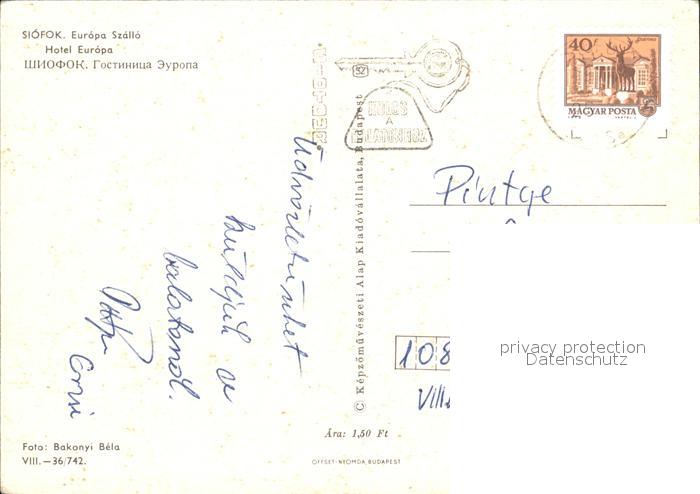 SIÓFOK. Európa Szálló
Hotel Európa
ШИОФОК. Гостиница Эуропа
Üdvözletünket
küldjük a
balatonról.
Foto: Bakonyi Béla
VIII.—36/742.
© Képzőművészeti Alap Kiadóvállalata, Budapest
Ára: 1,50 Ft
OFFSET-NYOMDA, BUDAPEST
52
KULCS
A
40f
MAGYAR POSTA
Pintye
108
VIII.
privacy protection
Datenschutz